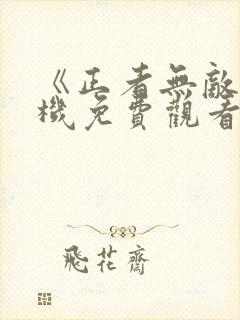 《正者無敵
機免費觀看
飛花齋